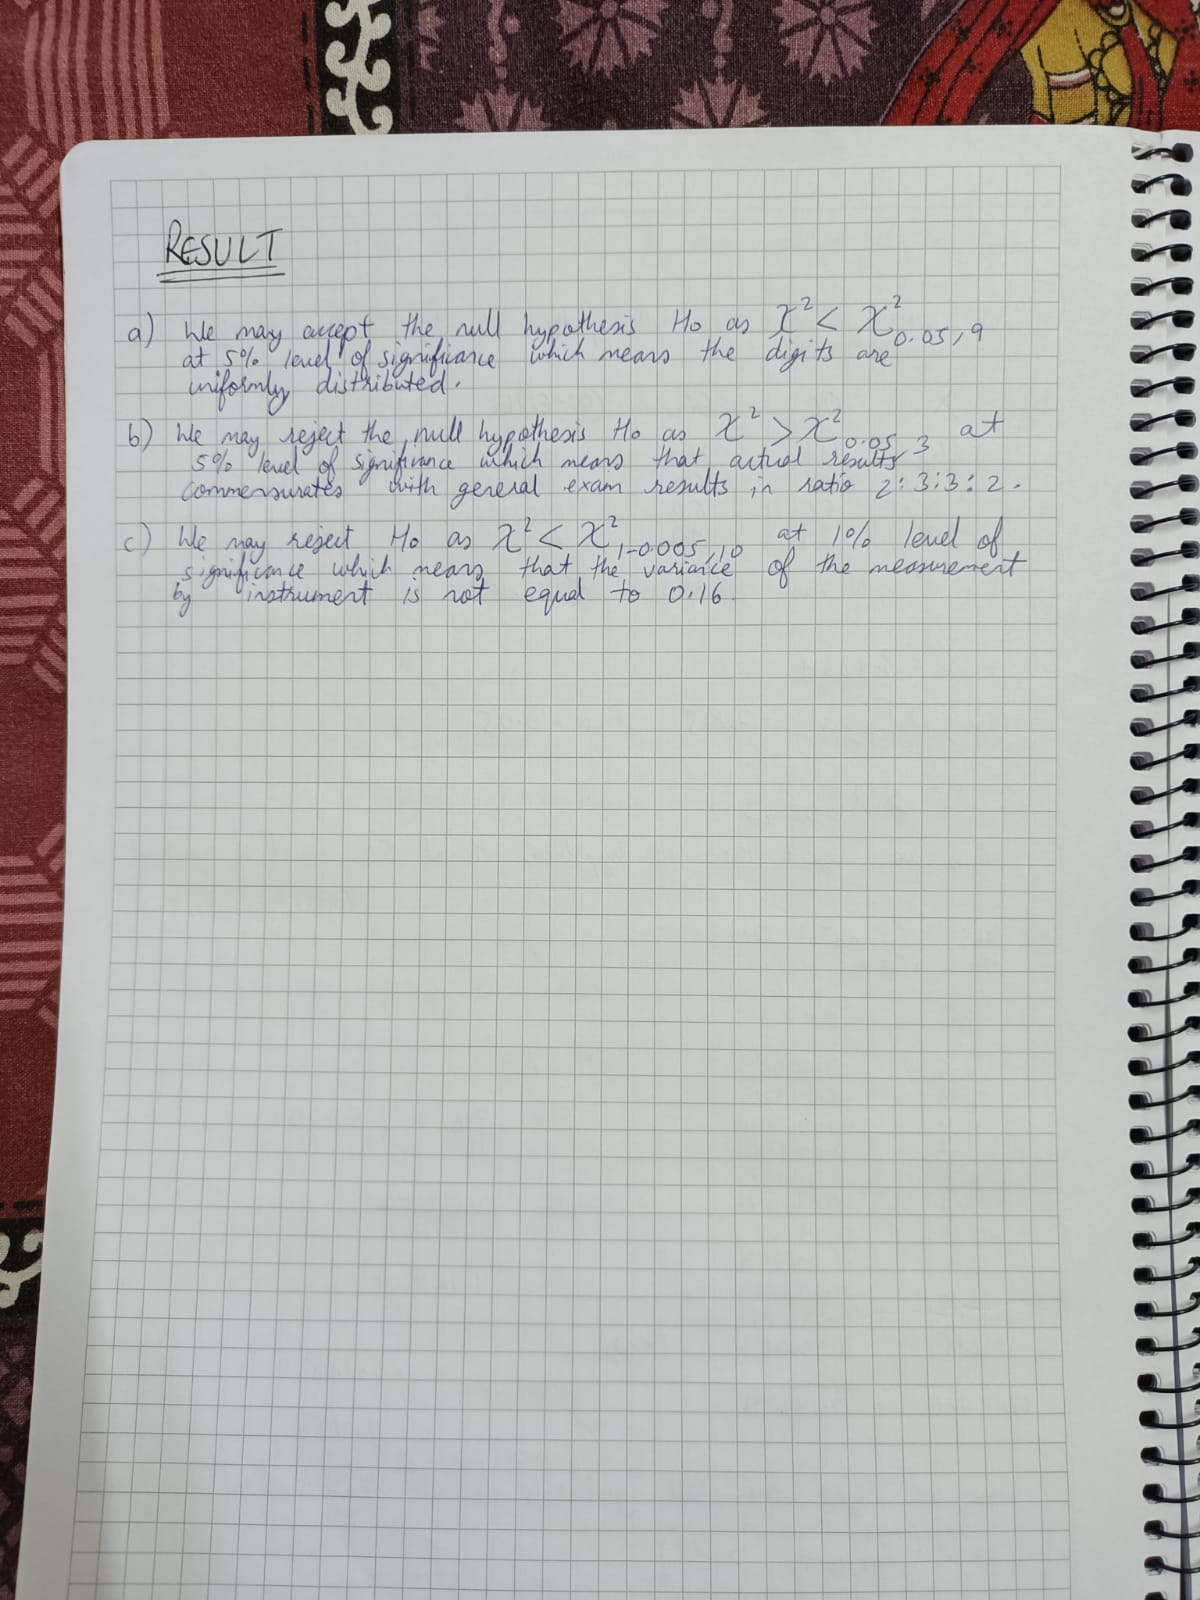 RESULT
a) We may accept the null hypothesis H₀ as χ² < χ²₀.₀₅,₉
at 5% level of significance which means the digits are
uniformly distributed.
b) We may reject the null hypothesis H₀ as χ² > χ²₀.₀₅,₃ at
5% level of significance which means that actual results
commensurates with general exam results in ratio 2:3:3:2.
c) We may reject H₀ as χ² < χ²₁₋₀.₀₀₅,₁₀ at 1% level of
significance which means that the variance of the measurement
by instrument is not equal to 0.16.